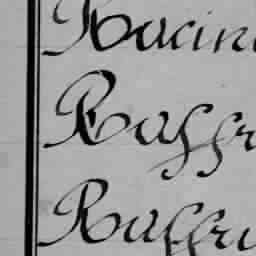 Racin
Raffr
Raffru